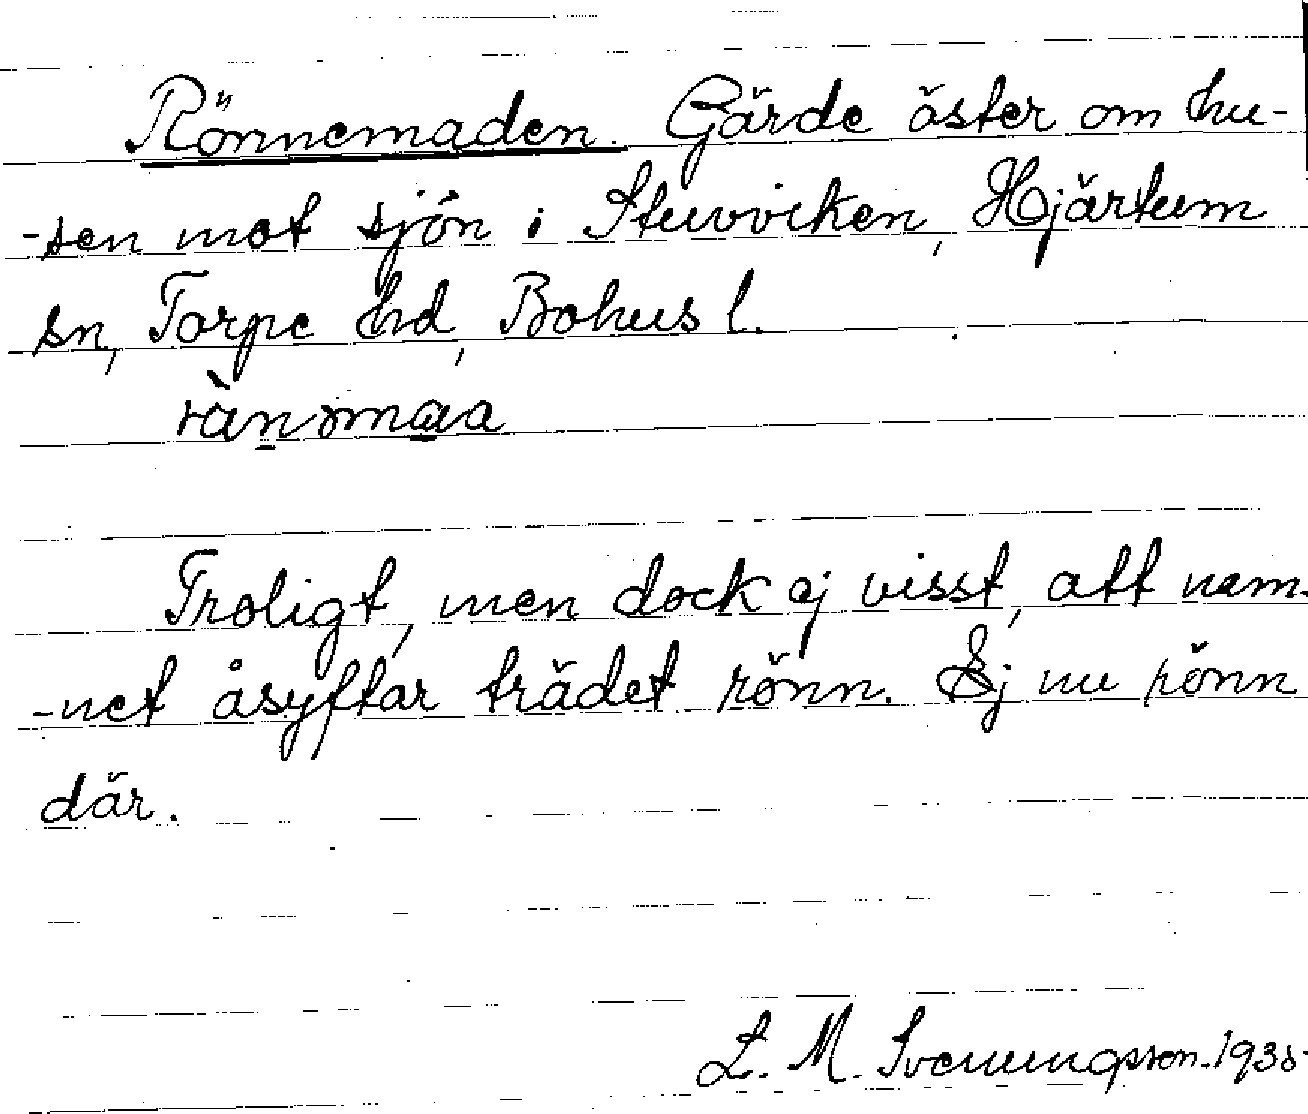 Rönnemaden. Gärde öster om hu-
-sen mot sjön i Stuvviken, Hjärtum
sn, Torpe hd, Bohus l.
Troligt, men dock ej visst, att nam-
-net åsyftar trädet rönn. Ej nu rönn
där.
L. M. Svenungsson.